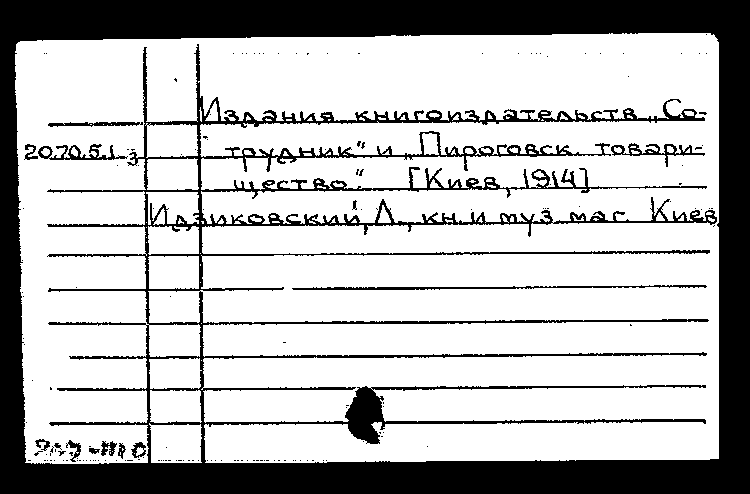 Издания книгоиздательств „Со-
20.70.5.1-3 трудник“ и „Пироговск. товари-
щество“. [Киев, 1914]
Идзиковский, Л., кн. и муз. маг. Киев